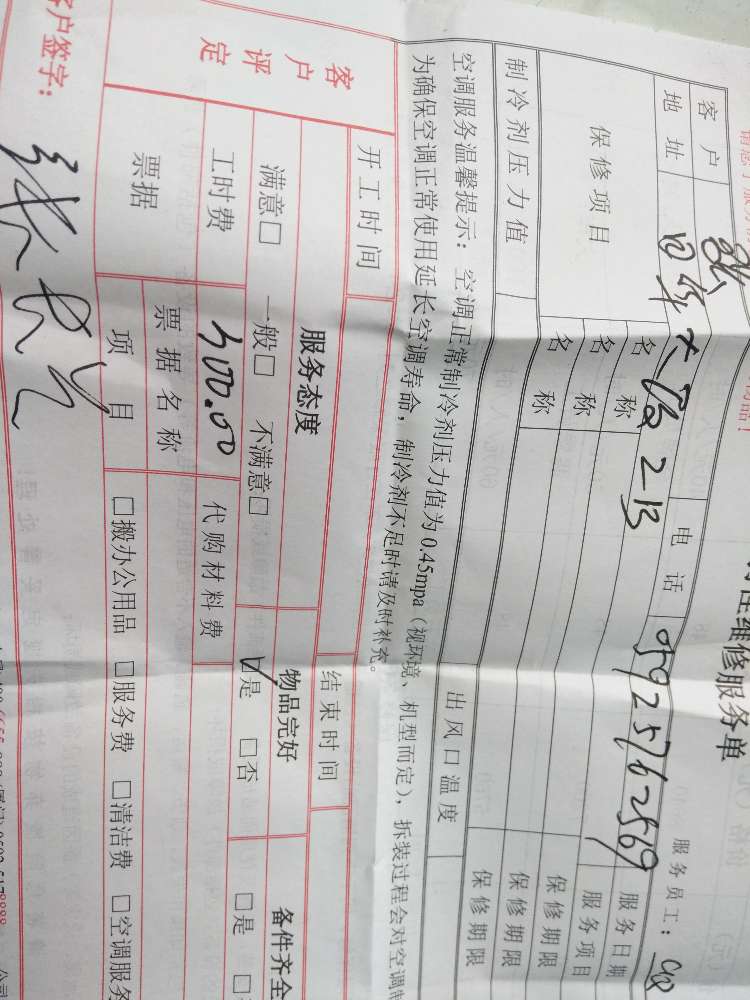 性维修服务单
服务员工：
客户 张 电话 05925762569 服务日期
地址 日华大厦213 服务项目
保修项目 名称 保修期限
名称 保修期限
名称 保修期限
制冷剂压力值 出风口温度
空调服务温馨提示：空调正常制冷剂压力值为0.45mpa（视环境、机型而定），拆装过程会对空调制
为确保空调正常使用延长空调寿命，制冷剂不足时请及时补充。
开工时间 结束时间
客户评定 服务态度 物品完好 备件齐全
满意□ 一般□ 不满意□ ☑是 □否 □是 □
工时费 300.00 代购材料费
票据 票据名称
项目 □搬办公用品 □服务费 □清洁费 □空调服务
客户签字：